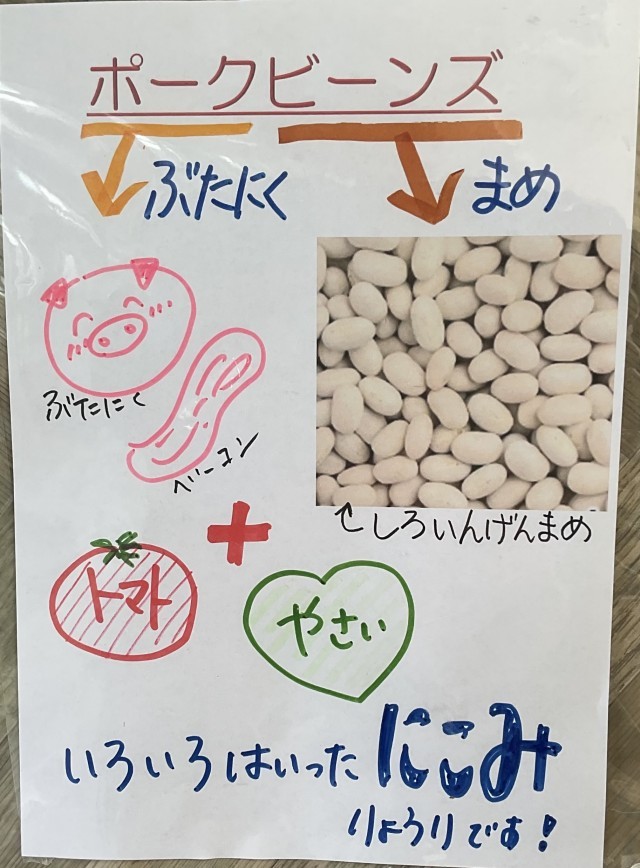 ポークビーンズ
ぶたにく
まめ
ぶたにく
ベーコン
しろいんげんまめ
トマト
やさい
いろいろはいったにこみ
りょうりです!